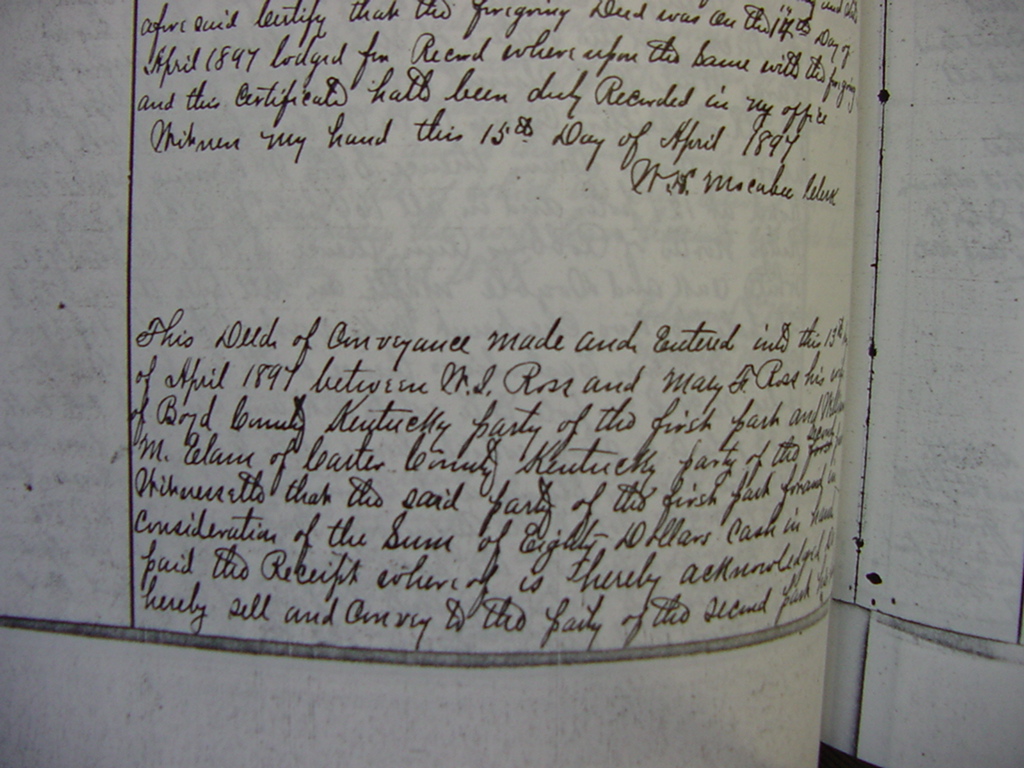 afore said Certify that the foregoing Deed was on the 14th Day of
April 1897 lodged for Record where upon the same with the foregoing
and this Certificate hath been duly Recorded in my office
Witness my hand this 15th Day of April 1897
W.H. Mocabee Clerk
This Deed of Conveyance made and Entered into this 15th
of April 1897 between W.S. Ross and Mary F Ross his
of Boyd County Kentucky party of the first part and
M. Elam of Carter County Kentucky party of the second
Witnesseth that the said party of the first part for and in
Consideration of the Sum of Eighty Dollars Cash in hand
paid the Receipt where of is hereby acknowledged
hereby sell and Convey to the party of the second part